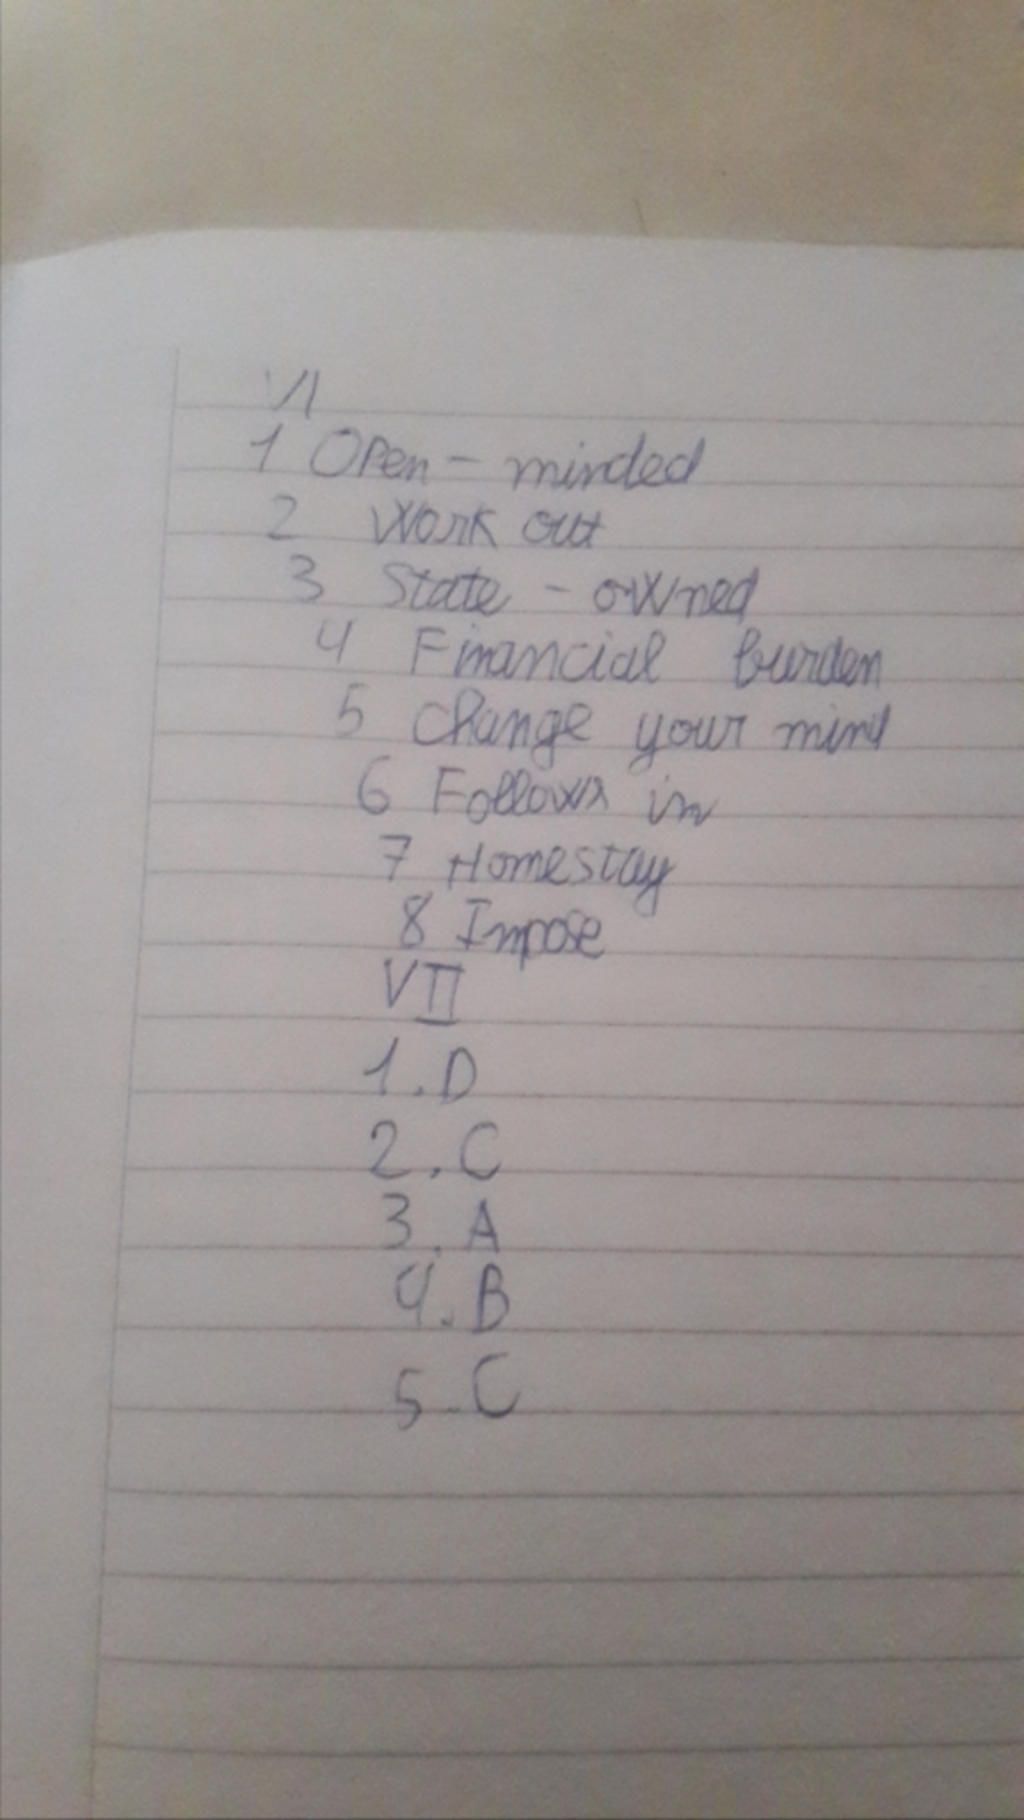 VI
1 Open - minded
2 Work out
3 State - owned
4 Financial burden
5 Change your mind
6 Follows in
7 Homestay
8 Impose
VII
1. D
2. C
3. A
4. B
5. C